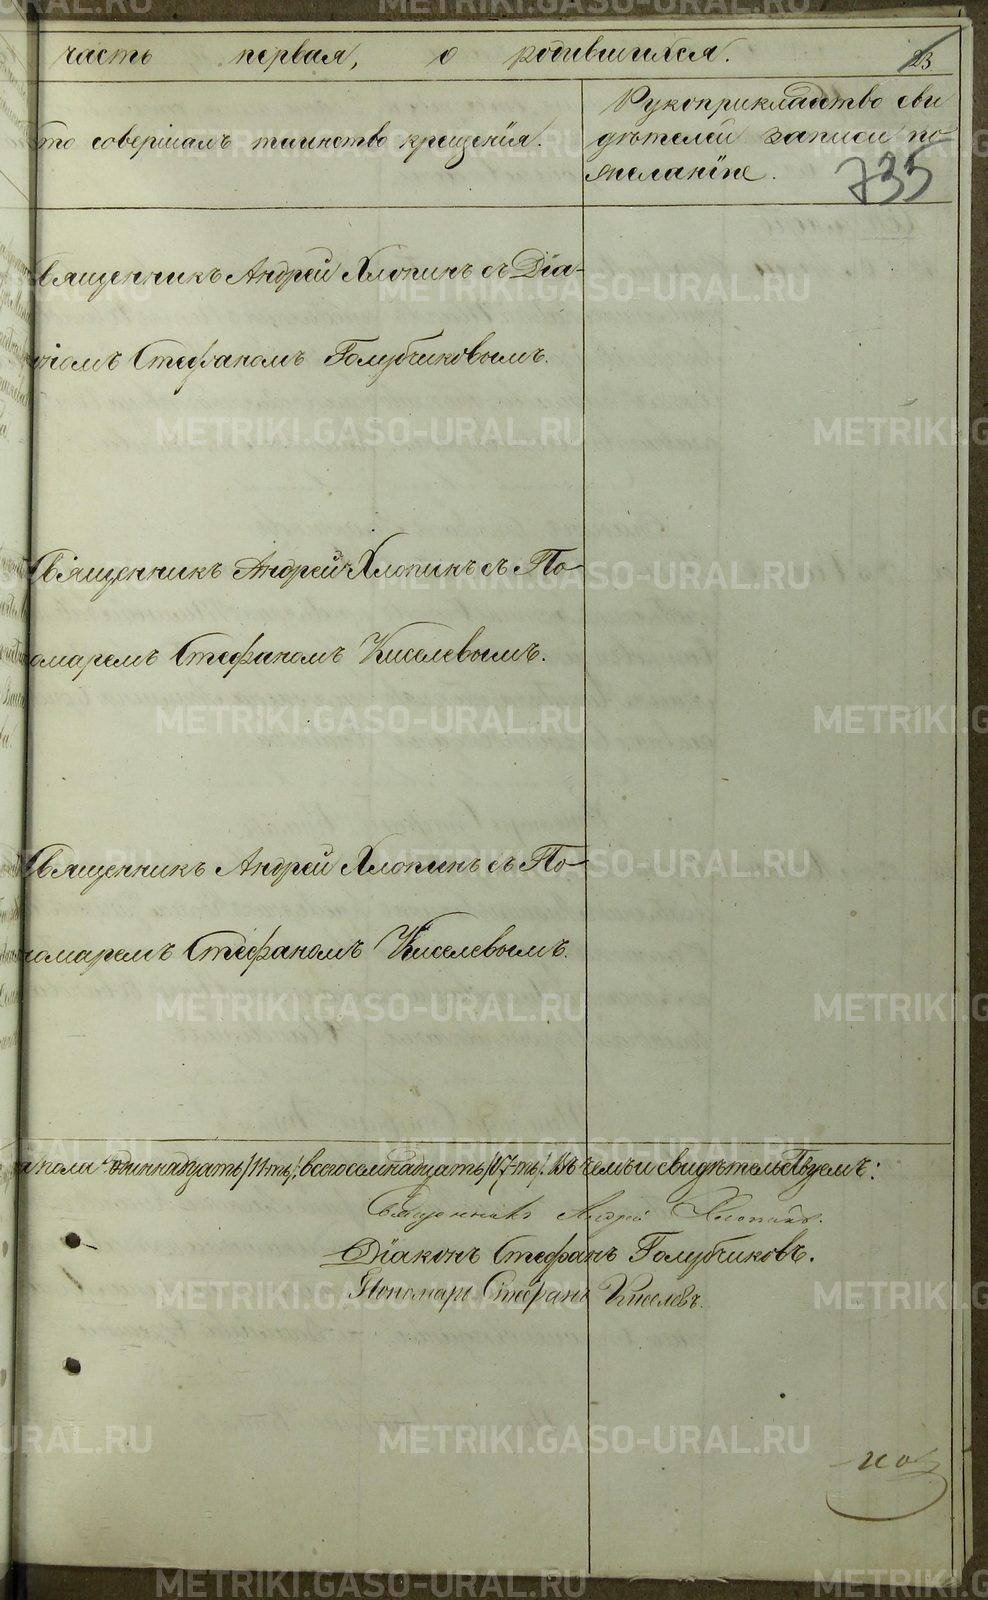 часть первая, о родившихся. 23
то совершалъ таинство крещенія.
Рукоприкладство сви
дѣтелей записи по
желанію.
735
вященникъ Андрей Хлопинъ съ Діа-
номъ Стефаномъ Голубчиковымъ.
Священникъ Андрей Хлопинъ съ По-
омаремъ Стефаномъ Киселевымъ.
Священникъ Андрей Хлопинъ съ По-
номаремъ Стефаномъ Киселевымъ.
пола одиннадцать /11-ть/, всего семнадцать /17-ть/. Въ чемъ и свидѣтельствуемъ:
Священникъ Андрей Хлопинъ.
Діаконъ Стефанъ Голубчиковъ.
Пономарь Стефанъ Киселевъ.
METRIKI.GASO-URAL.RU